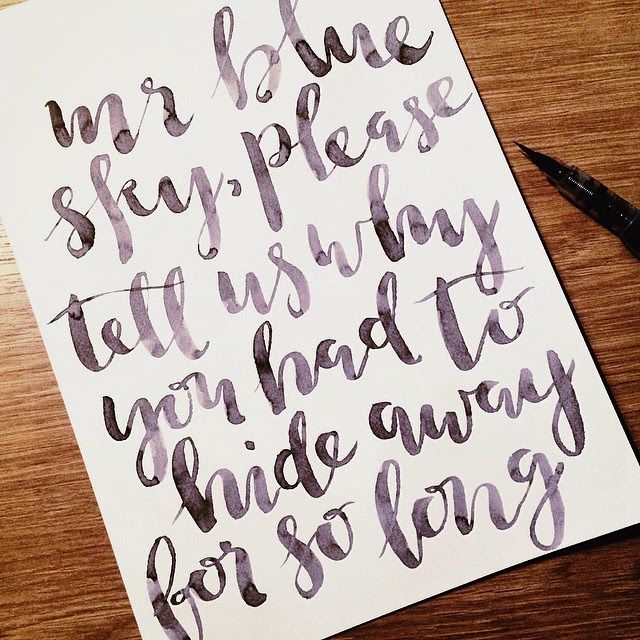 mr blue
sky, please
tell us why
you had to
hide away
for so long